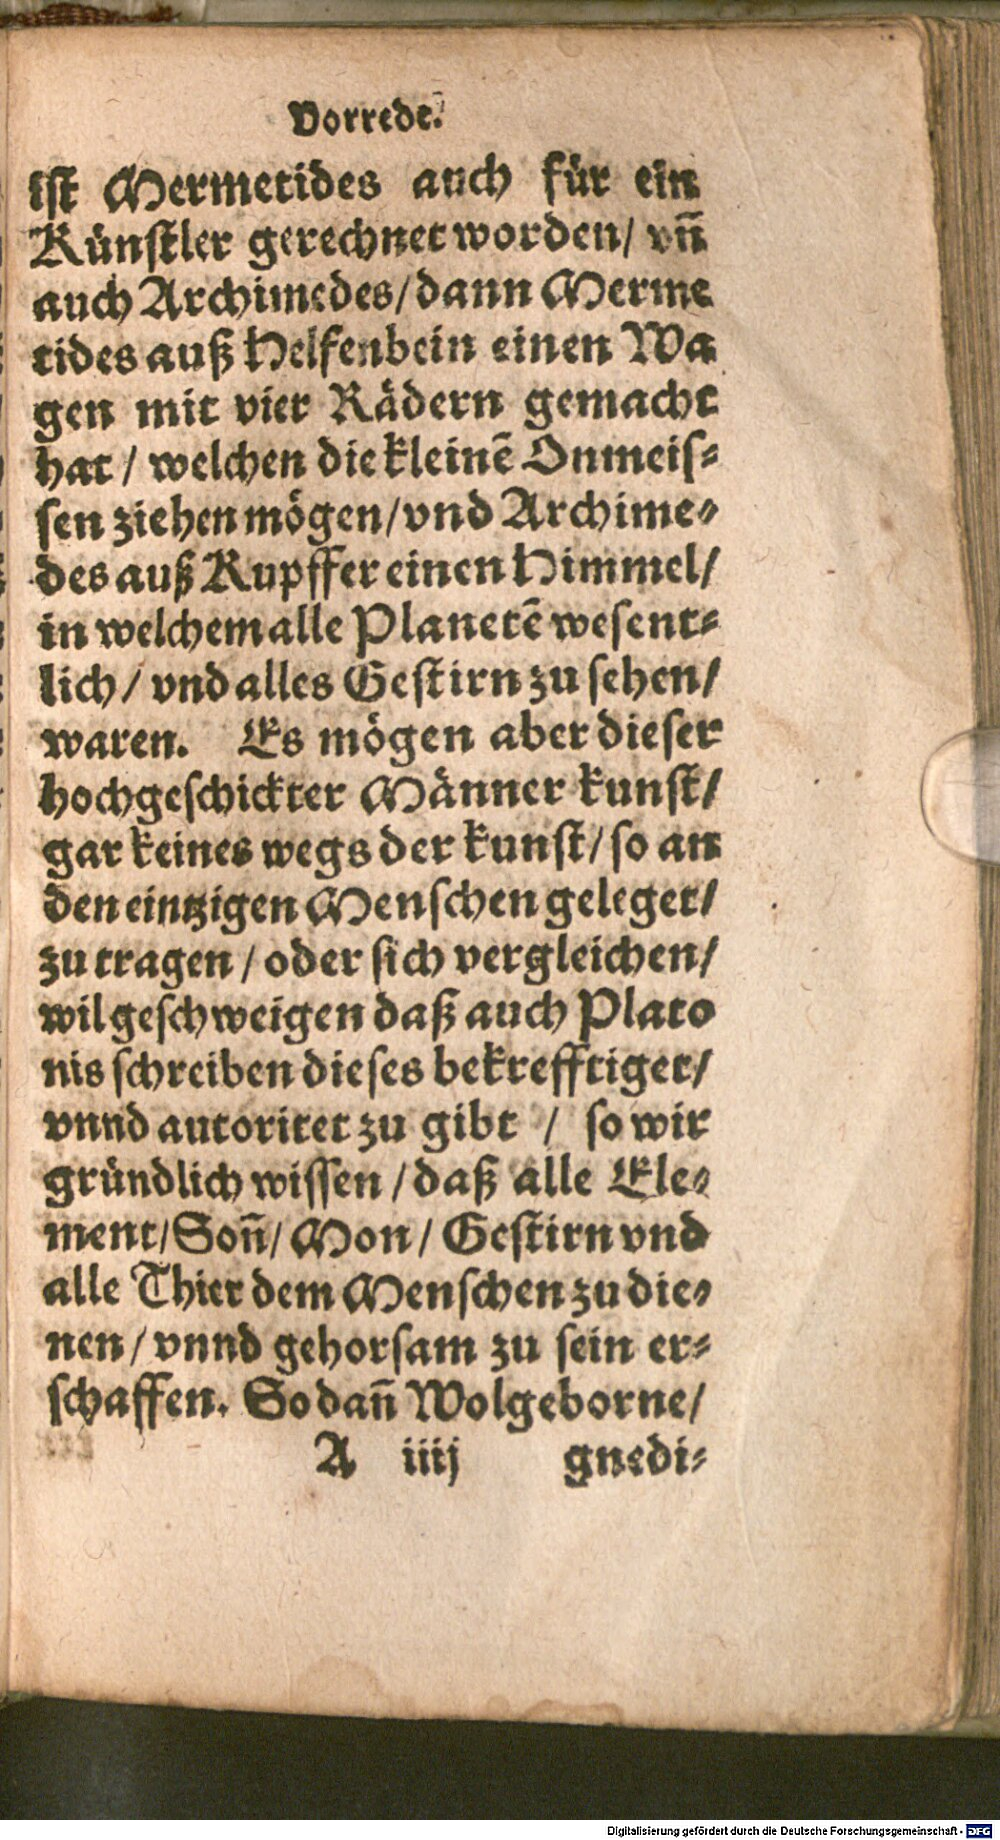 Vorrede.
ist Mermetides auch für ein
Künstler gerechnet worden/ vn̄
auch Archimedes/ dann Merme
tides auß Helfenbein einen Wa
gen mit vier Rädern gemacht
hat / welchen die kleinē Onmeis-
sen ziehen mögen/ vnd Archime-
des auß Kupffer einen Himmel/
in welchem alle Planetē wesent-
lich / vnd alles Gestirn zu sehen/
waren. Es mögen aber dieser
hochgeschickter Männer kunst/
gar keines wegs der kunst/ so an
den eintzigen Menschen geleget/
zu tragen / oder sich vergleichen/
wil geschweigen daß auch Plato
nis schreiben dieses bekrefftiget/
vnnd autoritet zu gibt / so wir
gründlich wissen / daß alle Ele-
ment/ Son̄/ Mon / Gestirn vnd
alle Thier dem Menschen zu die-
nen / vnnd gehorsam zu sein er-
schaffen. So dan̄ Wolgeborne/
A iiij gnedi-
Digitalisierung gefördert durch die Deutsche Forschungsgemeinschaft - DFG